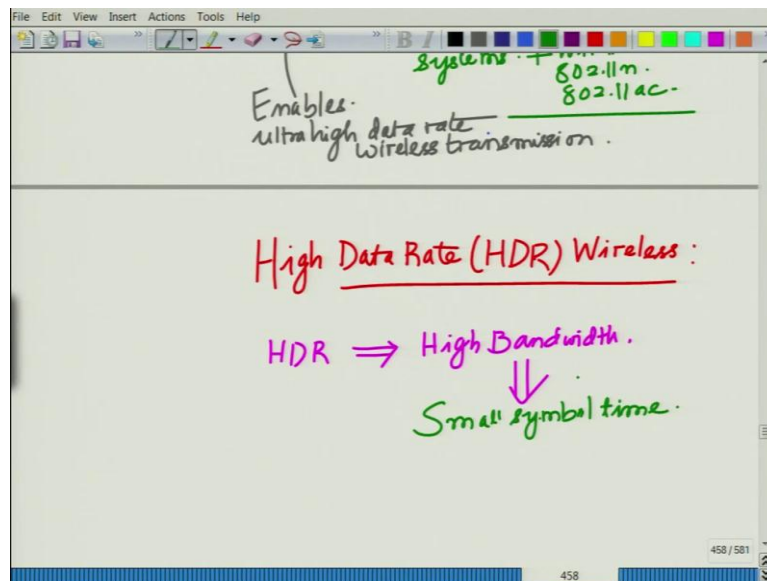 File Edit View Insert Actions Tools Help
B I
systems. +
802.11n.
802.11ac-
Enables.
ultrahigh data rate
wireless transmission.
High Data Rate (HDR) Wireless:
HDR ⇒ High Bandwidth.
⇓
Small symbol time.
458/581
458